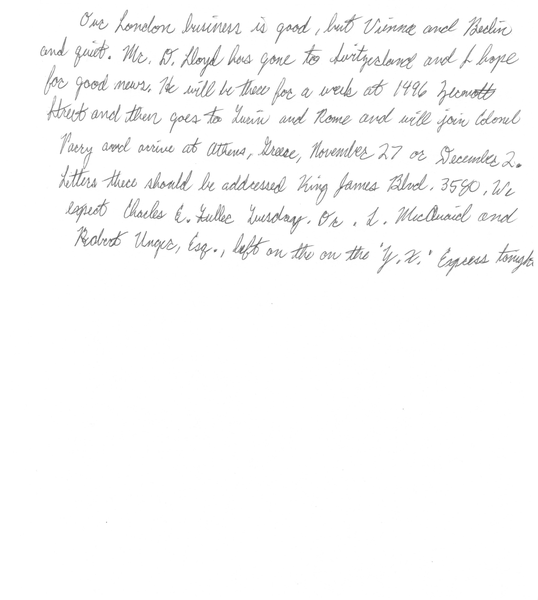 Our London business is good, but Vienna and Berlin
and quiet. Mr. D. Lloyd has gone to Switzerland and I hope
for good news. He will be there for a week at 1496 Zermott
Street and then goes to Turin and Rome and will join Colonel
Parry and arrive at Athens, Greece, November 27 or December 2.
Letters there should be addressed King James Blvd. 3580. We
expect Charles E. Fuller Tuesday. Dr. L. McQuaid and
Robert Unger, Esq., left on the on the 'Y.X.' Express tonight